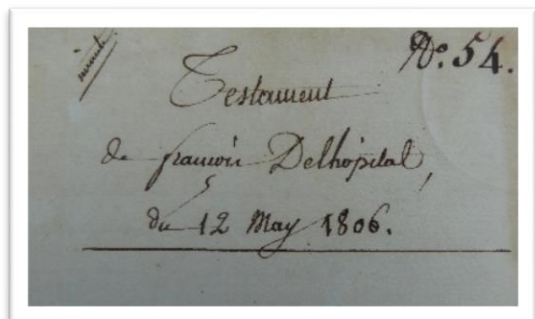 minute
N.º 54.
Testament
de françois Delhòpital,
du 12 May 1806.